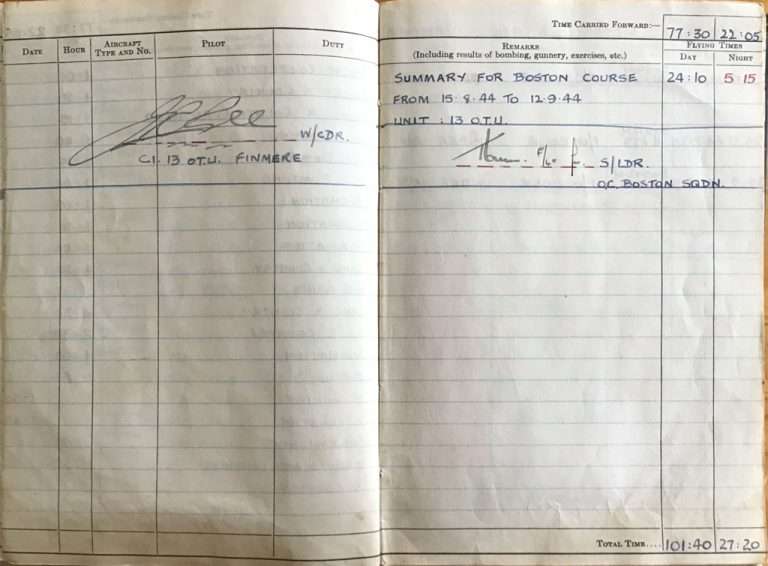 Time Carried Forward:— 77:30 22:05
Date Hour Aircraft Type and No. Pilot Duty
Remarks
(Including results of bombing, gunnery, exercises, etc.)
Flying Times
Day Night
SUMMARY FOR BOSTON COURSE 24:10 5:15
FROM 15.8.44 TO 12.9.44
UNIT : 13 O.T.U.
W/CDR.
C.I. 13 O.T.U. FINMERE
F/Lt. S/LDR.
O.C. BOSTON SQDN.
Total Time.... 101:40 27:20